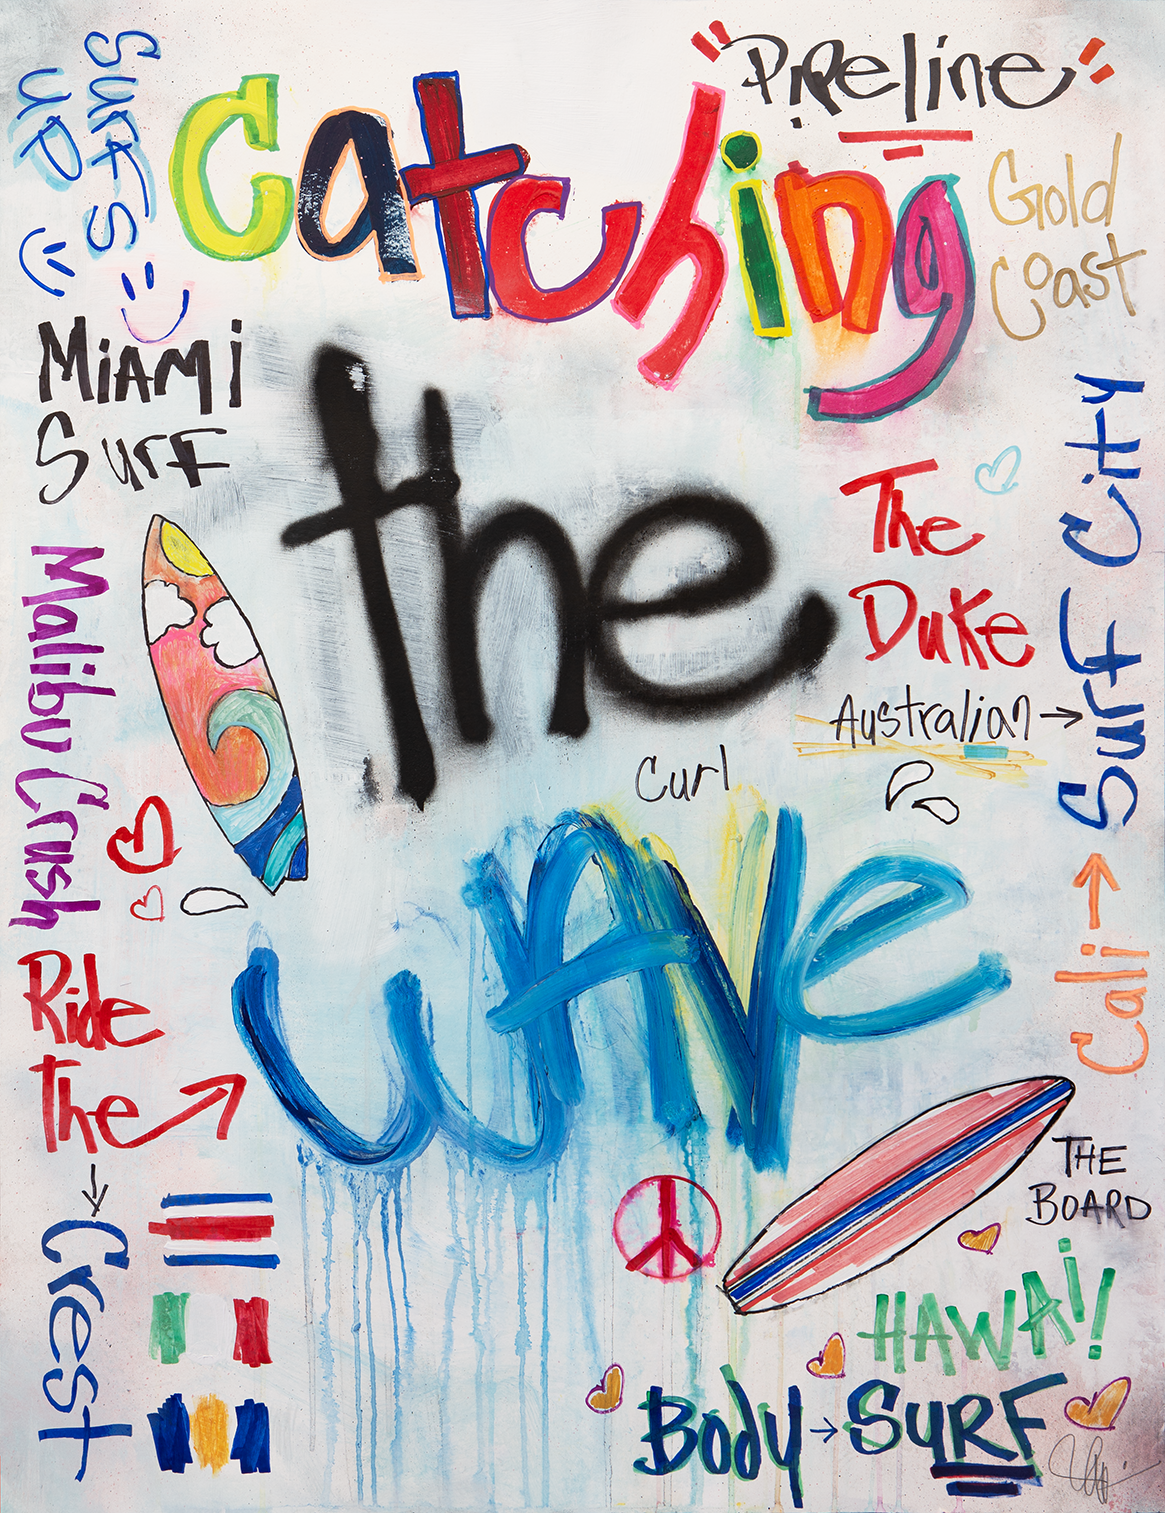 SurFS
UP
catching
"PiPeline"
Gold
Coast
MiAMi
SurF
the
The
Duke
Surf City
Australian
Malibu Crush
Curl
WAVe
Cali
Ride
The
Crest
THE
BOARD
HAWAii!
Body SuRF